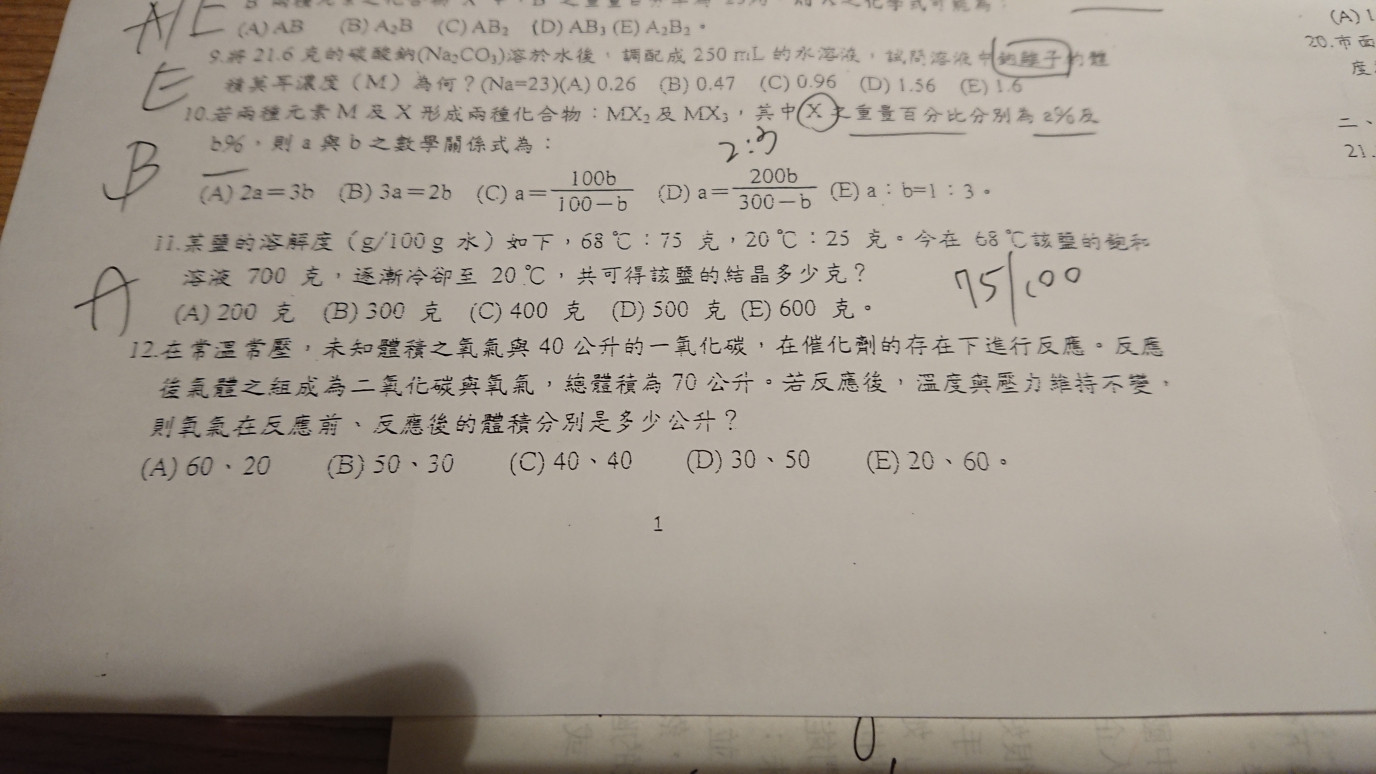 A/E
(A) AB (B) A₂B (C) AB₂ (D) AB₃ (E) A₂B₂。
9.將 21.6 克的碳酸鈉(Na₂CO₃)溶於水後，調配成 250 mL 的水溶液，試問溶液中鈉離子的體
積莫耳濃度（M）為何？(Na=23)(A) 0.26 (B) 0.47 (C) 0.96 (D) 1.56 (E) 1.6
E
10.若兩種元素 M 及 X 形成兩種化合物：MX₂ 及 MX₃，其中 X 之重量百分比分別為 a%及
b%，則 a 與 b 之數學關係式為：
2:3
B
(A) 2a＝3b (B) 3a＝2b (C) a＝100b/100－b (D) a＝200b/300－b (E) a：b=1：3。
11.某鹽的溶解度（g/100 g 水）如下，68 ℃：75 克，20 ℃：25 克。今在 68 ℃該鹽的飽和
溶液 700 克，逐漸冷卻至 20 ℃，共可得該鹽的結晶多少克？
75/100
A
(A) 200 克 (B) 300 克 (C) 400 克 (D) 500 克 (E) 600 克。
12.在常溫常壓，未知體積之氧氣與 40 公升的一氧化碳，在催化劑的存在下進行反應。反應
後氣體之組成為二氧化碳與氧氣，總體積為 70 公升。若反應後，溫度與壓力維持不變，
則氧氣在反應前、反應後的體積分別是多少公升？
(A) 60、20 (B) 50、30 (C) 40、40 (D) 30、50 (E) 20、60。
1
(A) 1
20.市面
度
二、
21.